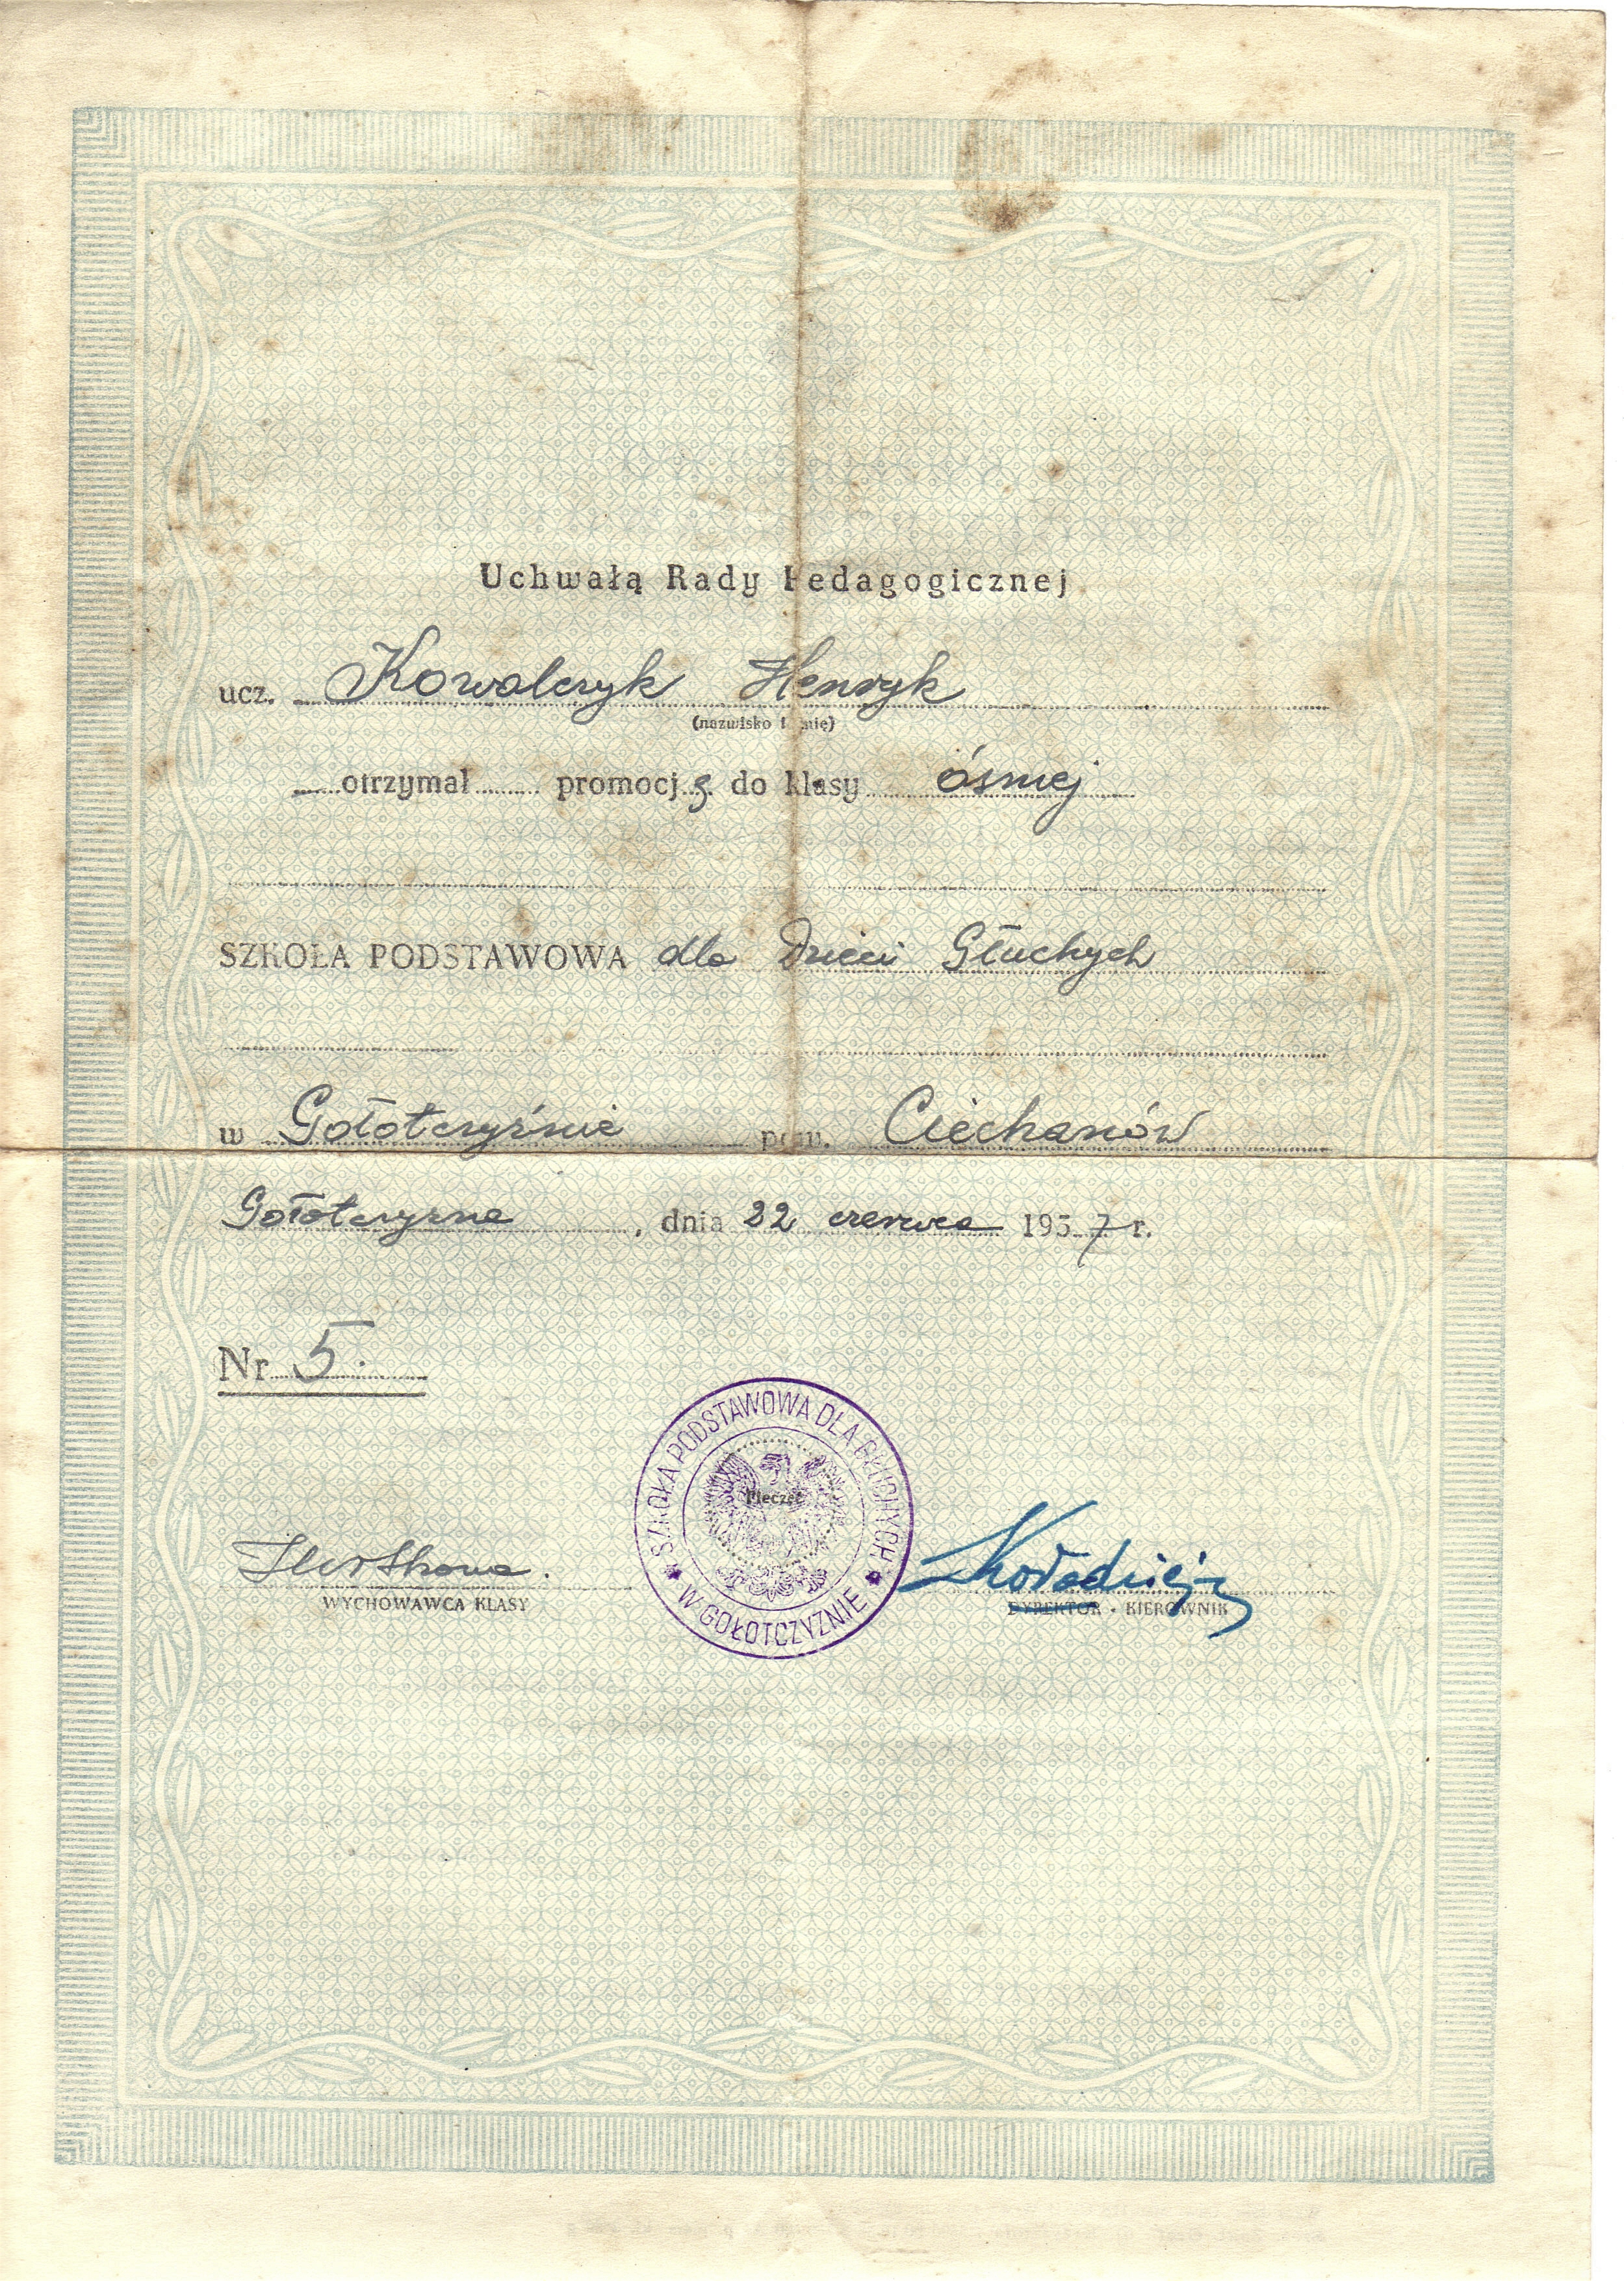 Uchwałą Rady Pedagogicznej
ucz. Kowalczyk Henryk
(nazwisko i imię)
otrzymał promocję do klasy ósmej
SZKOŁA PODSTAWOWA dla Dzieci Głuchych
w Gołotczyźnie pow. Ciechanów
Gołotczyzna, dnia 22 czerwca 1957 r.
Nr 5.
SZKOŁA PODSTAWOWA DLA GŁUCHYCH
W GOŁOTCZYŹNIE
Pieczęć
WYCHOWAWCA KLASY
Kołodziej
DYREKTOR - KIEROWNIK